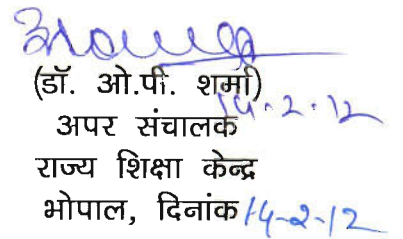 (डॉ. ओ.पी. शर्मा)
14-2-12
अपर संचालक
राज्य शिक्षा केन्द्र
भोपाल, दिनांक 14-2-12